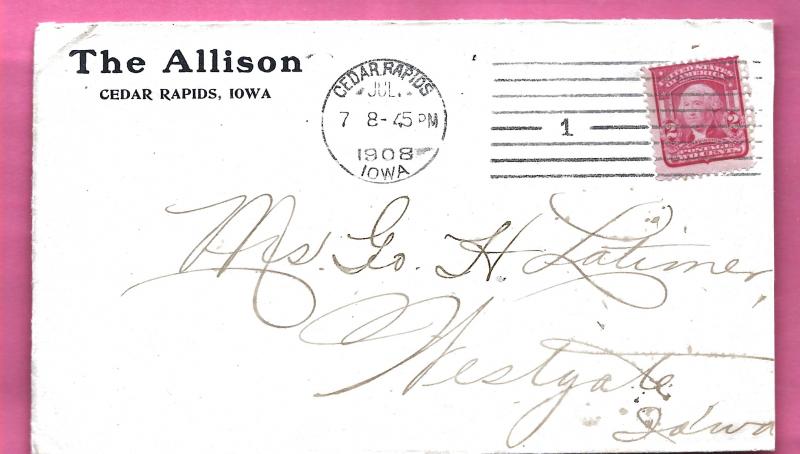 The Allison
CEDAR RAPIDS, IOWA
CEDAR RAPIDS
JUL.
7 8-45 PM
1908
IOWA
1
UNITED STATES
OF AMERICA
2 2
POSTAGE
TWO CENTS
Mrs. Geo. H. Latimer,
Westgate
Iowa